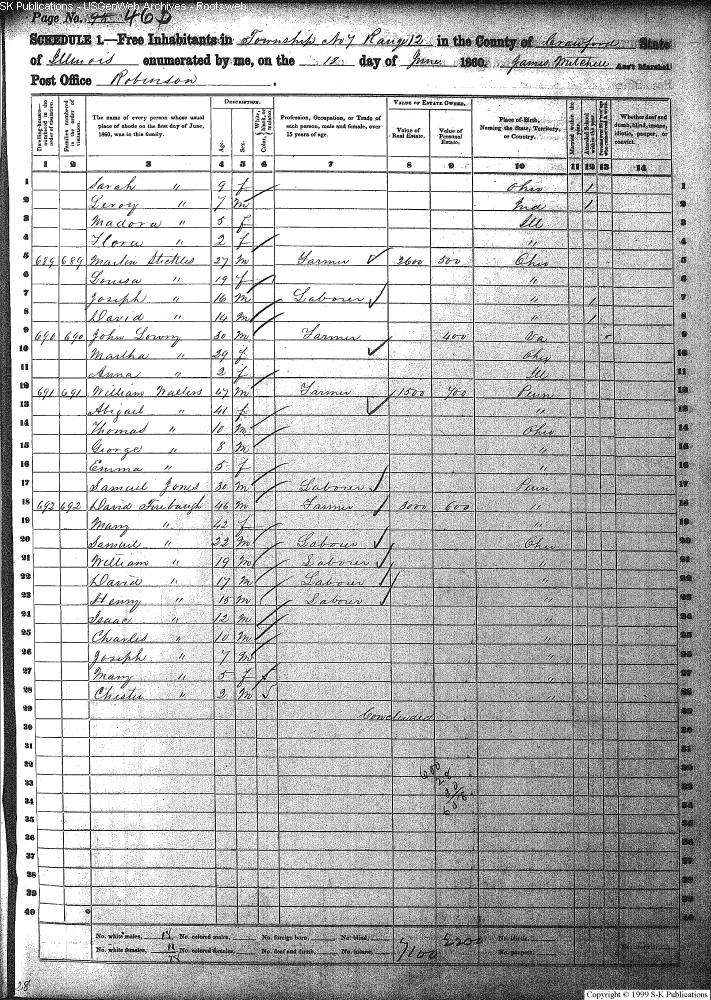 SK Publications - USGenWeb Archives - Rootsweb
Page No. 95 46D
SCHEDULE 1.—Free Inhabitants in Township No 7 Range 12 in the County of Crawford State
of Illinois enumerated by me, on the 18 day of June 1860. James Mitchell Ass't Marshal
Post Office Robinson.
Dwelling-houses—numbered in the order of visitation.
Families numbered in the order of visitation.
The name of every person whose usual place of abode on the first day of June, 1860, was in this family.
DESCRIPTION.
Age.
Sex.
Color, {White, black, or mulatto.
Profession, Occupation, or Trade of each person, male and female, over 15 years of age.
VALUE OF ESTATE OWNED.
Value of Real Estate.
Value of Personal Estate.
Place of Birth, Naming the State, Territory, or Country.
Married within the year.
Attended School within the year.
Whether deaf and dumb, blind, insane, idiotic, pauper, or convict.
1 2 3 4 5 6 7 8 9 10 11 12 13 14
1 Sarah " 9 f Ohio 1 1
2 Leroy " 7 m Ind 1 2
3 Madora " 5 f Ill 3
4 Flora " 2 f " 4
5 689 689 Martin Stickles 27 m Farmer 2600 500 Ohio 5
6 Louisa " 19 f " 6
7 Joseph " 16 m Laborer " 1 7
8 David " 14 m " 1 8
9 690 690 John Lowry 30 m Farmer 400 Va 9
10 Martha " 29 f Ohio 10
11 Anna " 2 f Ill 11
12 691 691 William Walters 47 m Farmer 1500 700 Penn 12
13 Abigail " 41 f " 13
14 Thomas " 10 m Ohio 14
15 George " 8 m " 15
16 Emma " 5 f " 16
17 Samuel Jones 30 m Laborer Penn 17
18 692 692 David Furbaugh 46 m Farmer 3000 600 " 18
19 Mary " 42 f " 19
20 Samuel " 22 m Labourer Ohio 20
21 William " 19 m Labourer " 21
22 David " 17 m Labourer " 22
23 Henry " 15 m Labour " 23
24 Isaac " 12 m " 24
25 Charles " 10 m " 25
26 Joseph " 7 m " 26
27 Mary " 5 f " 27
28 " 2 m " 28
29 Concluded 29
30
31
32
33
34
35
36
37
38
39
40
No. white males, 18 No. colored males, No. foreign born, No. blind, 7100 2200 No. idiotic,
No. white females, 11 No. colored females, No. deaf and dumb, No. insane, No. paupers,
28
Copyright © 1999 S-K Publications